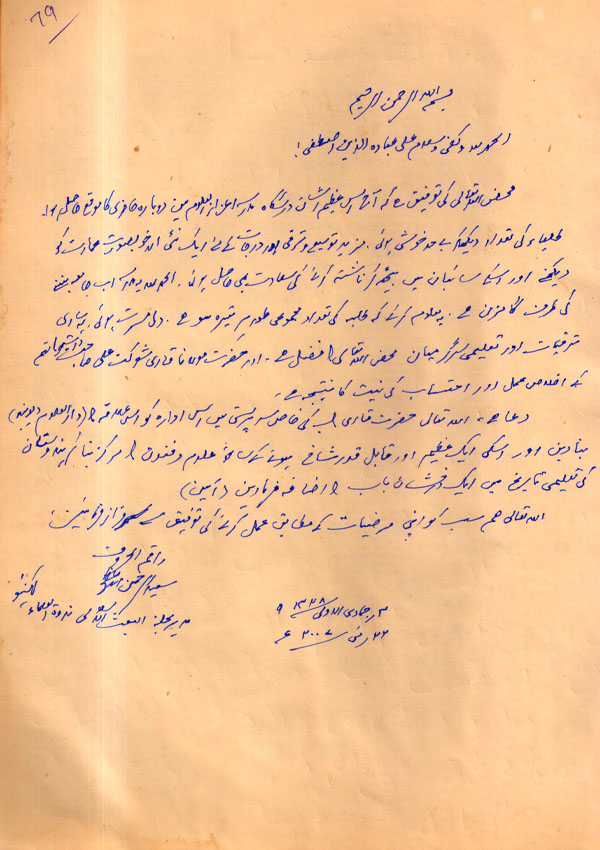 69
بسم اللہ الرحمن الرحیم
الحمد للہ وکفی وسلام علی عبادہ الذین اصطفی!
محض اللہ تعالی کی توفیق ہے کہ آج اس عظیم الشان درسگاہ مدرسہ اعزاز العلوم میں دوبارہ حاضری کا موقع حاصل ہوا۔
طلباء کی تعداد دیکھکر بے حد خوشی ہوئی، مزید توسیع و ترقی اور درجات کے لئے ایک نئی اور خوبصورت عمارت کو
دیکھنے اور اسکے سائبان میں بیٹھ کر ناشتہ کرنے کی سعادت بھی حاصل ہوئی۔ الحمد للہ یہ مدرسہ اب جامعہ بننے
کی طرف گامزن ہے۔ یہ معلوم کرکے کہ طلبہ کی تعداد مجموعی طور پر سو ہے۔ دلی مسرت ہوئی، یہ ساری
ترقیات اور تعلیمی سرگرمیاں محض اللہ تعالی کا فضل ہے۔ اور حضرت مولانا قاری شوکت علی صاحب دامت برکاتہم
کے اخلاص عمل اور احتساب کی نیت کا نتیجہ ہے۔
دعا ہے، اللہ تعالی حضرت قاری صاحب کی خاص سرپرستی میں اس ادارہ کو اس علاقہ کا (دار العلوم دیوبند)
بنادیں اور اسکی ایک عظیم اور قابل قدر شاخ ہونے کے علوم وفنون کا مرکز بنا کر ہندوستان
کی تعلیمی تاریخ میں ایک درخشاں باب کا اضافہ فرمادیں (آمین)
اللہ تعالی ہم سب کو اپنی مرضیات کے مطابق عمل کرنے کی توفیق سے سرفراز فرمائیں۔
راقم الحروف
سعید الرحمن اعظمی ندوی
مدیر مجلہ البعث الاسلامی ندوۃ العلماء، لکھنؤ
جمادی الاولی ۱۴۲۸ھ
۲۲ مئی ۲۰۰۷ء